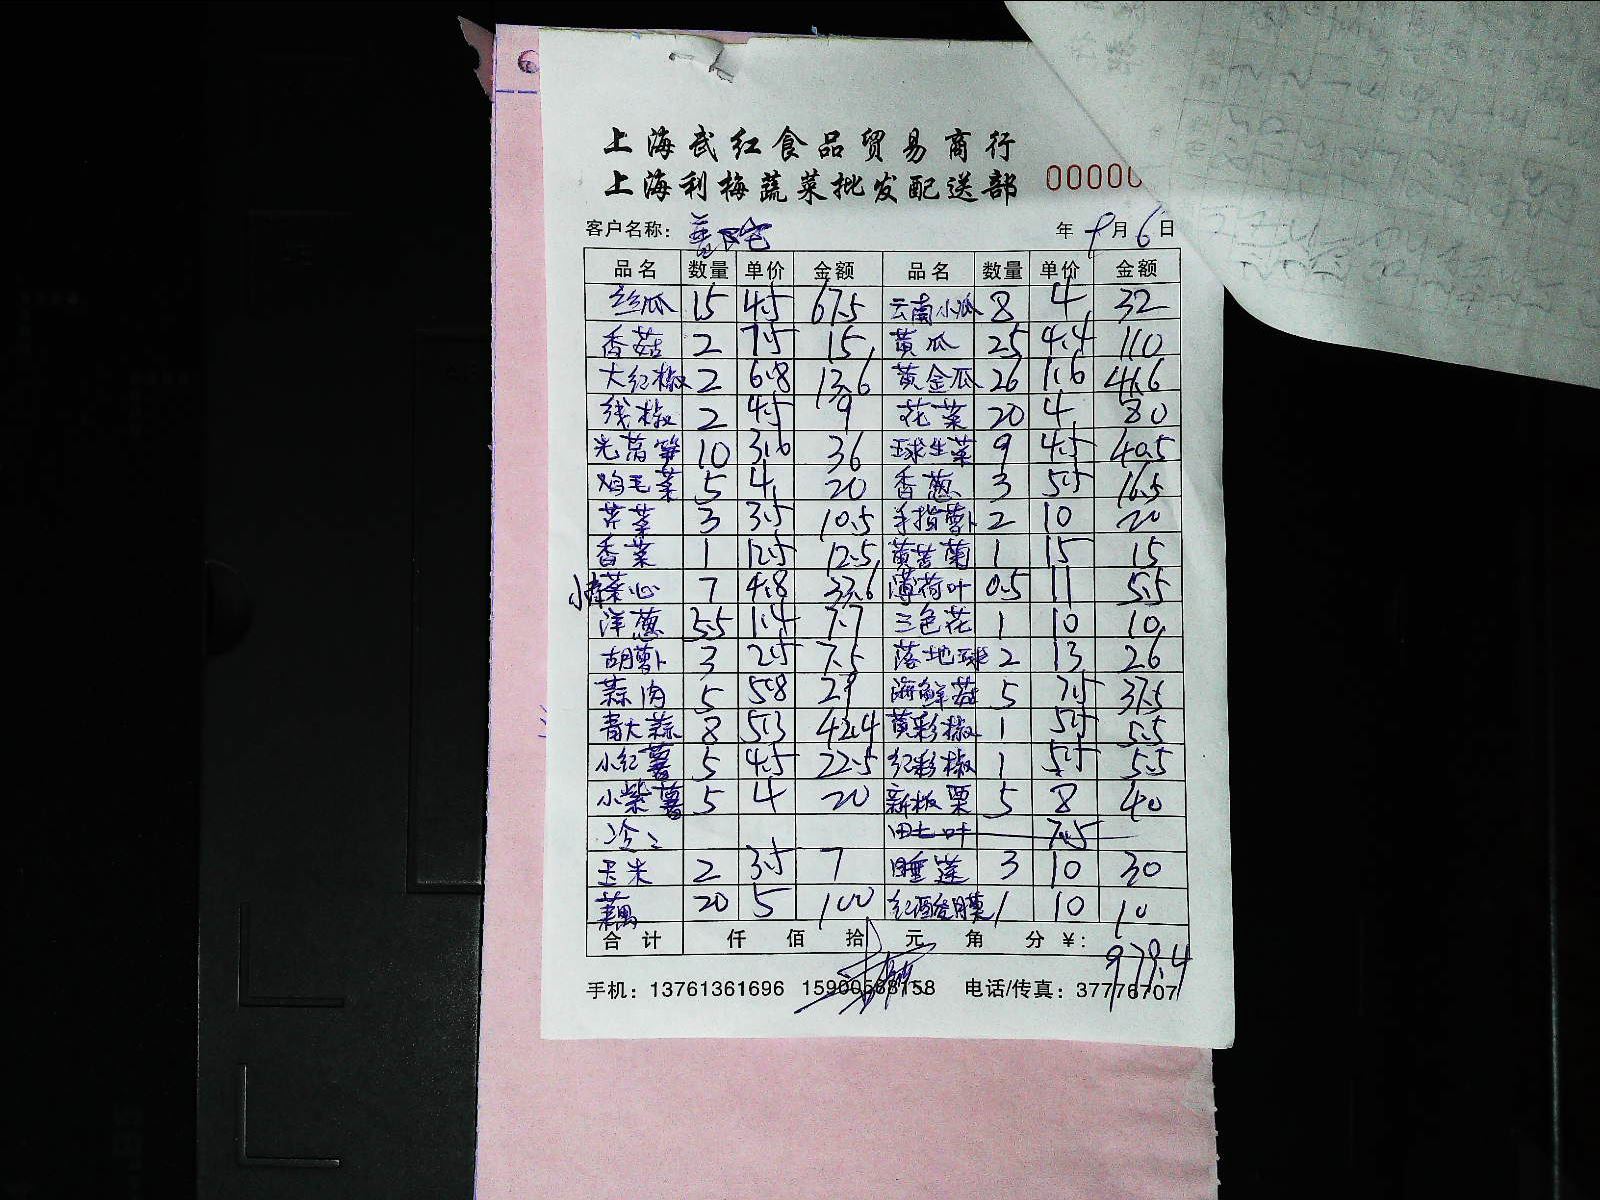 上海武红食品贸易商行
上海利梅蔬菜批发配送部 00000
客户名称： 年 9月6日
品名 数量 单价 金额 品名 数量 单价 金额
丝瓜 15 4.5 67.5 云南小瓜 8 4 32
香菇 2 7.5 15 黄瓜 25 4.4 110
大红椒 2 6.8 13.6 黄金瓜 26 1.6 41.6
线椒 2 4.5 9 花菜 20 4 80
光莴笋 10 3.6 36 球生菜 9 4.5 40.5
鸡毛菜 5 4 20 香葱 3 5.5 16.5
芹菜 3 3.5 10.5 手指萝卜 2 10 20
香菜 1 12.5 12.5 黄苦菊 1 15 15
菜心 7 4.8 33.6 薄荷叶 0.5 11 5.5
洋葱 5.5 1.4 7.7 三色花 1 10 10
胡萝卜 3 2.5 7.5 落地球 2 13 26
蒜肉 5 5.8 29 海鲜菇 5 7.5 37.5
青大蒜 8 5.3 42.4 黄彩椒 1 5.5 5.5
小红薯 5 4.5 22.5 红彩椒 1 5.5 5.5
小紫薯 5 4 20 新板栗 5 8 40
冷: 叶 7.5
玉米 2 3.5 7 睡莲 3 10 30
藕 20 5 100 红酸膜 1 10 10
合计 仟 佰 拾 元 角 分 ¥: 979.4
手机：13761361696 15900568158 电话/传真：37776707